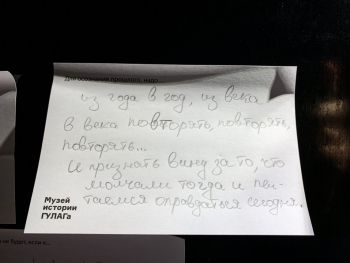 Для осознания прошлого, надо...
из года в год, из века
в века повторять, повторять,
повторять...
И признать вину за то, что
молчали тогда и пы-
таемся оправдаться сегодня.
Музей
истории
ГУЛАГа
не будет, если я...